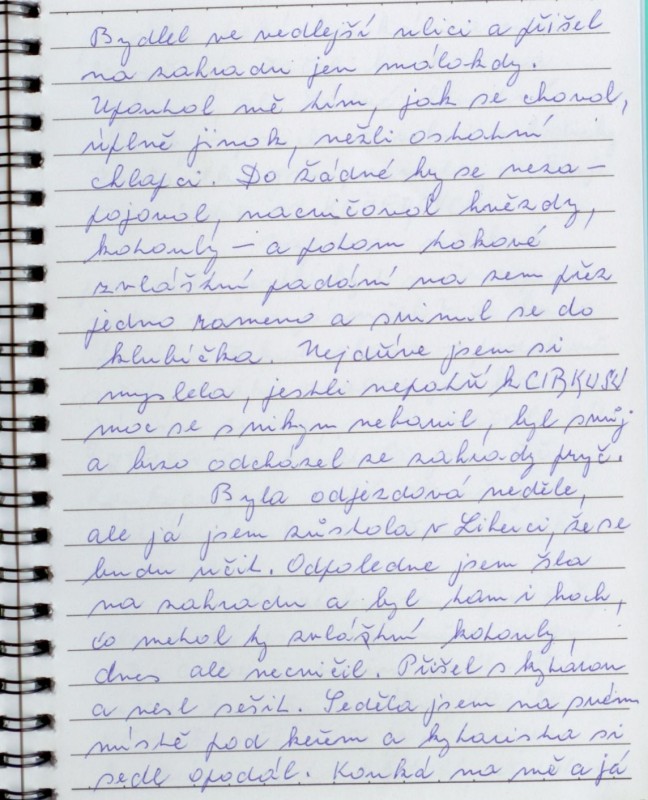 Bydlel ve vedlejší ulici a přišel
na zahradu jen málokdy.
Upoutal mě tím, jak se choval,
úplně jinak, nežli ostatní
chlapci. Do žádné hry se neza-
pojoval, nacvičoval hvězdy,
kotouly – a potom takové
zvláštní padání na zem přez
jedno rameno a svinul se do
klubíčka. Nejdříve jsem si
myslela, jestli nepatří k CIRKUSU
moc se s nikym nebavil, byl svůj
a brzo odcházel ze zahrady pryč.
Byla odjezdová neděle,
ale já jsem zůstala v Liberci, že se
budu učit. Odpoledne jsem šla
na zahradu a byl tam i hoch,
co metal ty zvláštní kotouly,
dnes ale necvičil. Přišel s kytarou
a nesl sešit. Seděla jsem na svém
místě pod keřem a kytarista si
sedl opodál. Kouká na mě a já